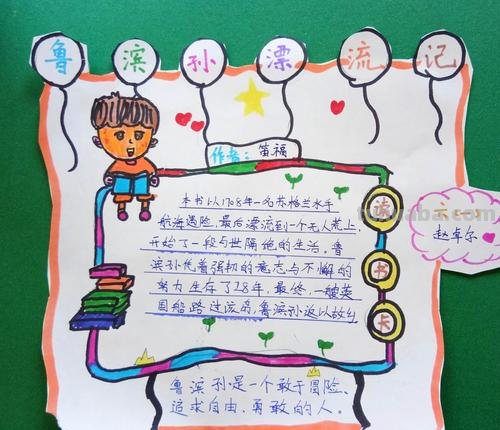 鲁滨孙漂流记
作者：笛福
本书以1708年一名苏格兰水手
航海遇险，最后漂流到一个无人荒上，
开始了一段与世隔绝的生活，鲁
滨孙凭着强韧的意志与不懈的
努力生存了28年，最终，一艘英
国船路过该岛，鲁滨孙返以故乡
读
书
卡
赵卓尔
鲁滨孙是一个敢于冒险、
追求自由、勇敢的人。